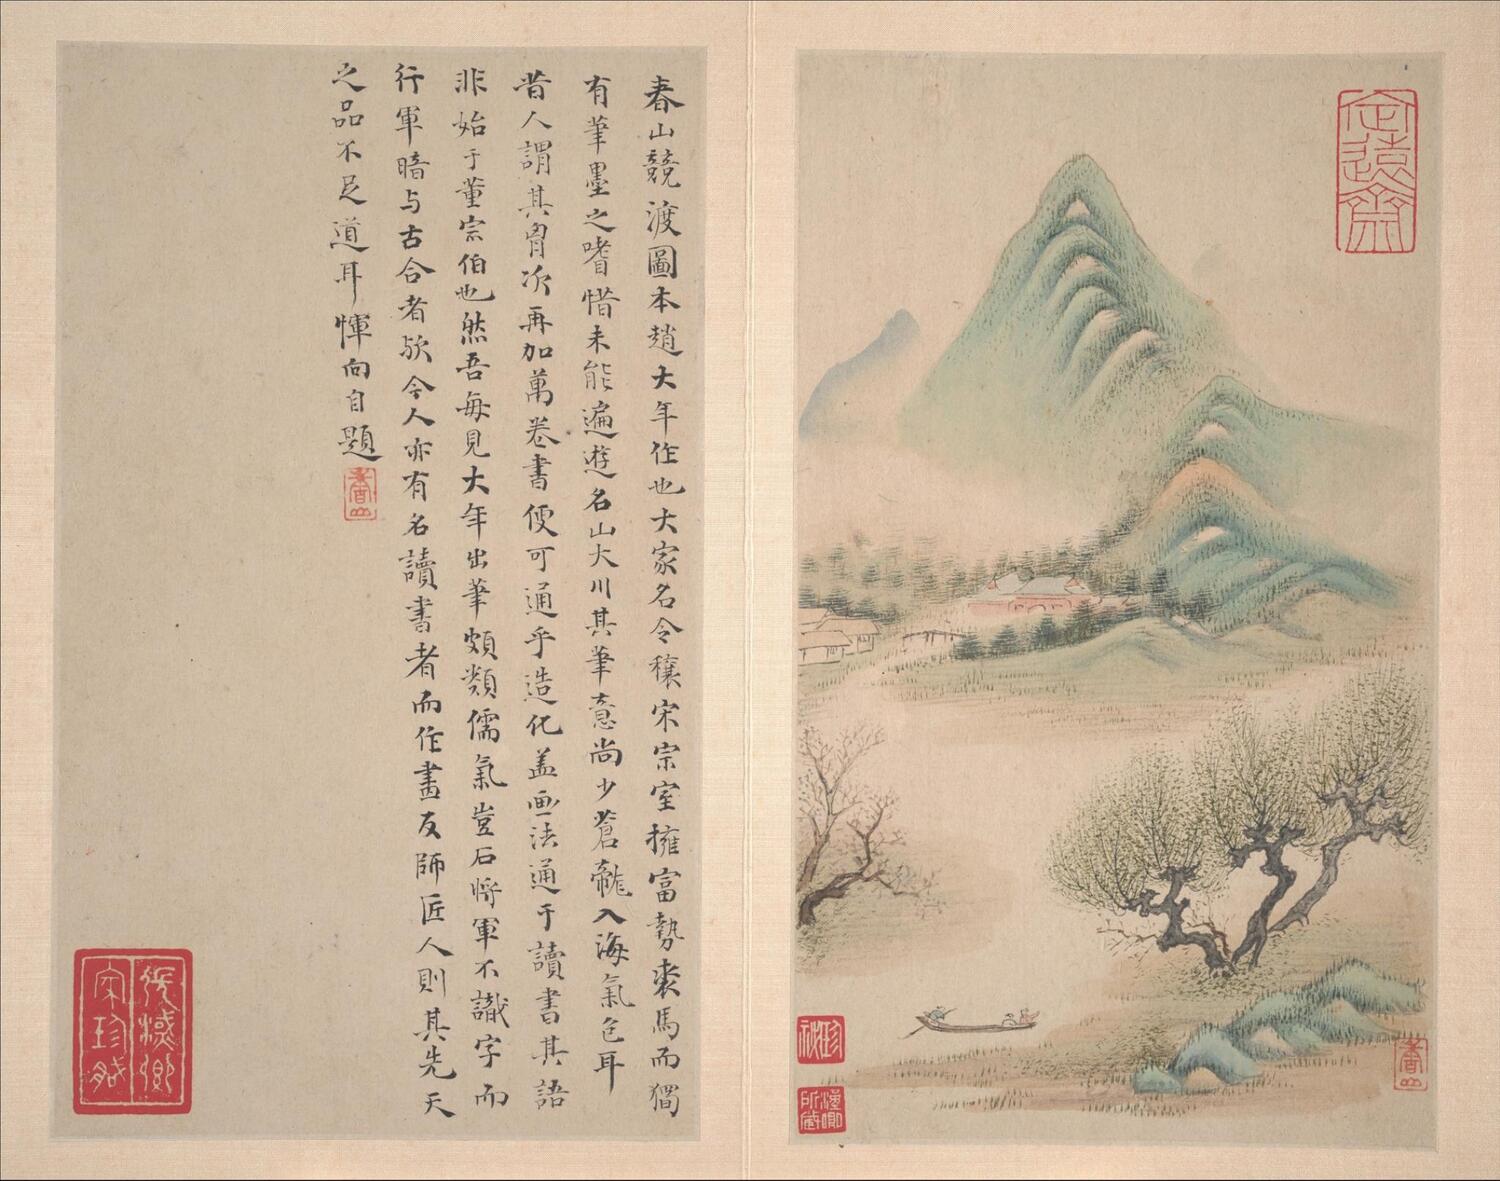 春山競渡圖本趙大年作也大家名令穰宋宗室擁富勢裘馬而獨
有筆墨之嗜惜未能遍遊名山大川其筆意尚少蒼龍入海氣色耳
昔人謂其胷次再加萬卷書便可通乎造化盖画法通于讀書其語
非始于董宗伯也然吾每見大年出筆頗類儒氣豈石將軍不識字而
行軍暗与古合者欤今人亦有名讀書者而作畫反師匠人則其先天
之品不足道耳惲向自題
香山
張橫卿
宋珍賦
定遠齋
香山
珍秘
漢卿所藏